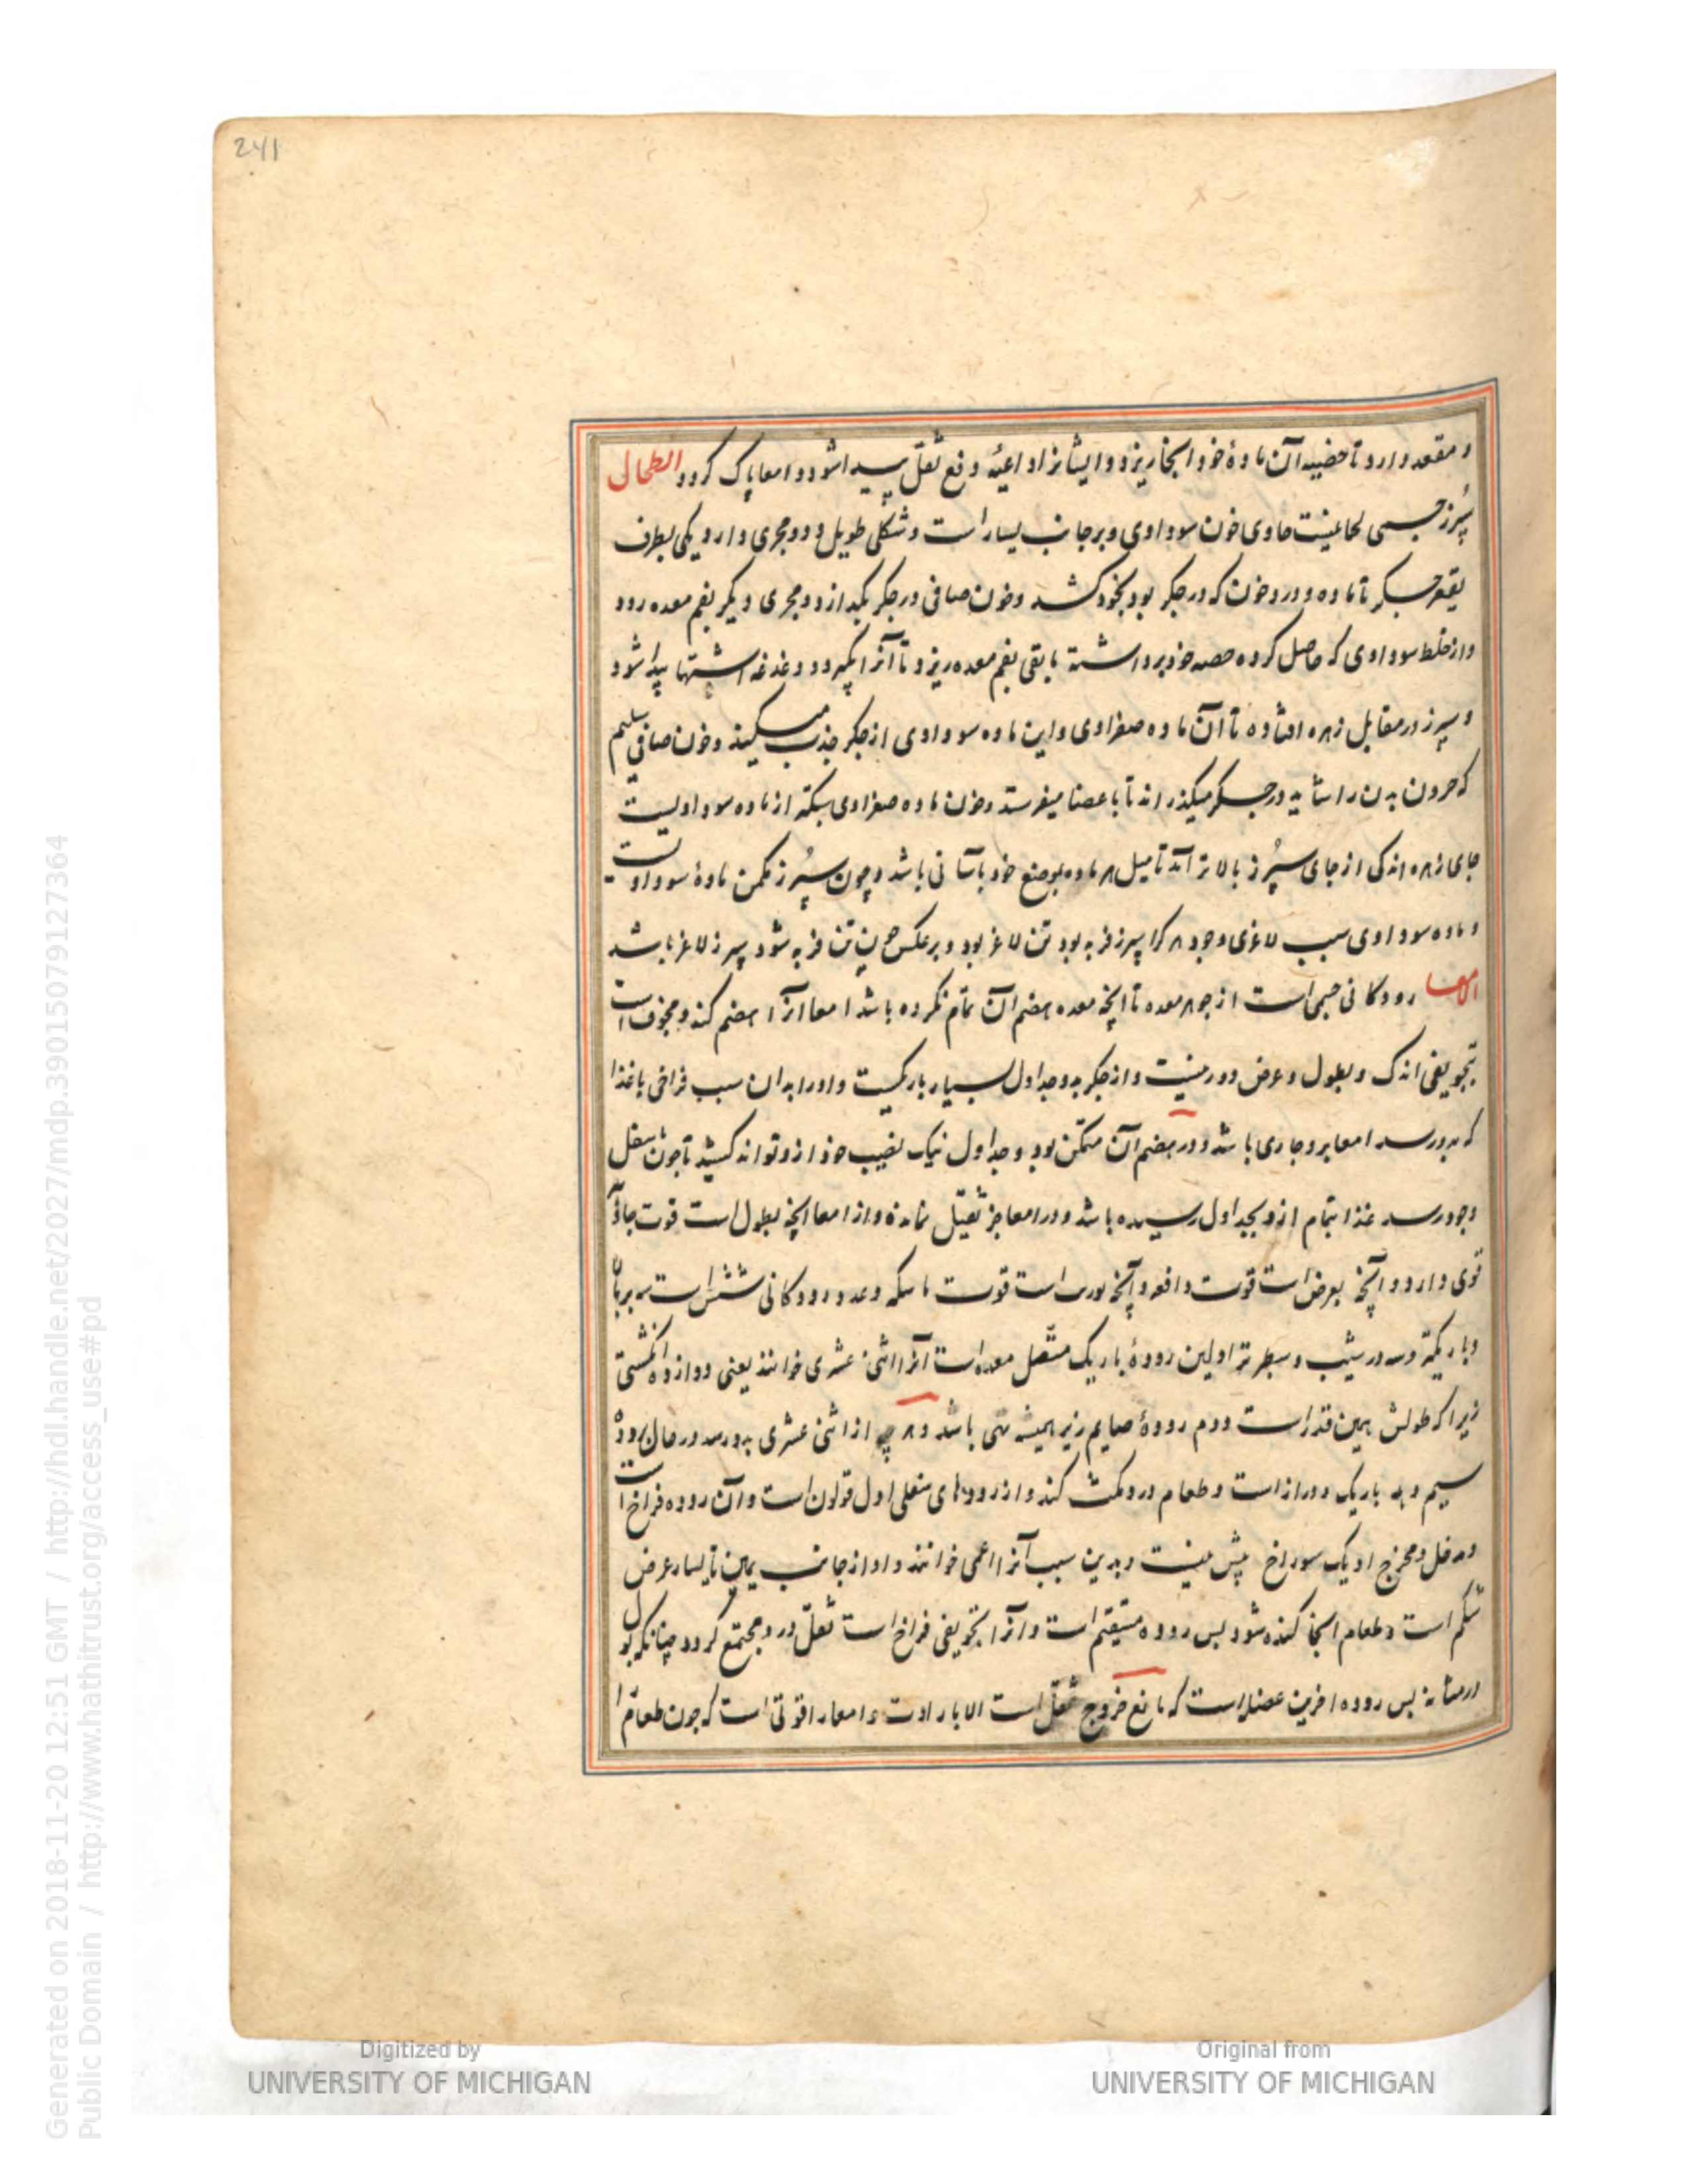 241
و مقعد دارد تا خضیه آن مادهٔ خود انجا ریزد و ایشانرا داعیهٔ دفع ثفل پیدا شود و امعا پاک کردد الطحال
سپُرز جسمی لحا حاوی خون سوداوی و برجانب یسار است و شکلی طویل و دو مجری دارد یکی بطرف
بقعر جکر تا ماده و درد خون که در جکر بود بخود کشد و خون صافی در جکر بکدازد و مجری دیکر بفم معده رود
و از خلط سوداوی که حاصل کرده حصه خود برداشته باقی بفم معده ریزد تا آنرا بکیرد و دغدغه اشتها پیدا شود
و سپرز در مقابل زهره افتاده تا آن ماده صفراوی و این ماده سوداوی از جکر جذب میکیند و خون صافی سلیم
که بدن را شاید در جکر میکذراند تا باعضا میفرستد و خون ماده صفراوی سبکتر از ماده سوداویست
جای زهره اندکی از جای سپُرز بالاتر آمد تا میل هر ماده بوضع خود باسانی باشد و چون سپُرز مکمن مادهٔ سوداوست
و ماده سوداوی سبب لاغری وجود هر کرا سپرز فربه بود تن لاغر بود و برعکس چون تن فربه شود سپرز لاغر باشد
الامعا رودکانی جسمی است از جوهر معده تا انچه معده هضم آن تمام نکرده باشد امعا آنرا هضم کند و مجوف است
تجویفی اندک و بطول و عرض دور نیست و از جکر بدو جداول بسیار باریکست و اورا بدان سبب فراخی با غذا
که بدو رسد امعا برو جاری باشد و در هضم آن متمکن بود و جداول نیک نصیب خود ازو تواند کشید تا چون سفل
وجود رسد غذا بتمام ازو بجداول رسیده باشد و در امعا جز ثفل نمانده و از امعا انچه بطول است قوت جاذبه
قوی دارد و آنچه بعرض است قوت دافعه و آنچه بورب است قوت ماسکه و عدد رودکانی شش است سه بربالا
و باریکتر و سه در شیب و سطبرتر اولین رودهٔ باریک متصل معده است آنرا اثنی عشری خوانند یعنی دوازده انکشتی
زیرا که طولش همین قدر است دوم رودهٔ صایم زیرا همیشه تهی باشد و هرچه از اثنی عشری بدو رسد در حال برود
سیم باریک و دراز است و طعام درو مکث کند و از رودهای سفلی اول قولون است و آن روده فراخ است
و مدخل و مخرج او یک سوراخ بیش نیست و بدین سبب آنرا اعمی خوانند و او از جانب یمین تا یسار عرض
شکم است و طعام انجا کنده شود پس روده مستقیم است و آنرا تجویفی فراخ است ثفل درو مجتمع کردد چنانکه بول
در مثانه پس روده اخرین عضله است که مانع خروج ثفل است الا بارادت و امعا را قوتی است که چون طعام
Digitized by
UNIVERSITY OF MICHIGAN
Original from
UNIVERSITY OF MICHIGAN
Generated on 2018-11-20 12:51 GMT / http://hdl.handle.net/2027/mdp.39015079127364
Public Domain / http://www.hathitrust.org/access_use#pd